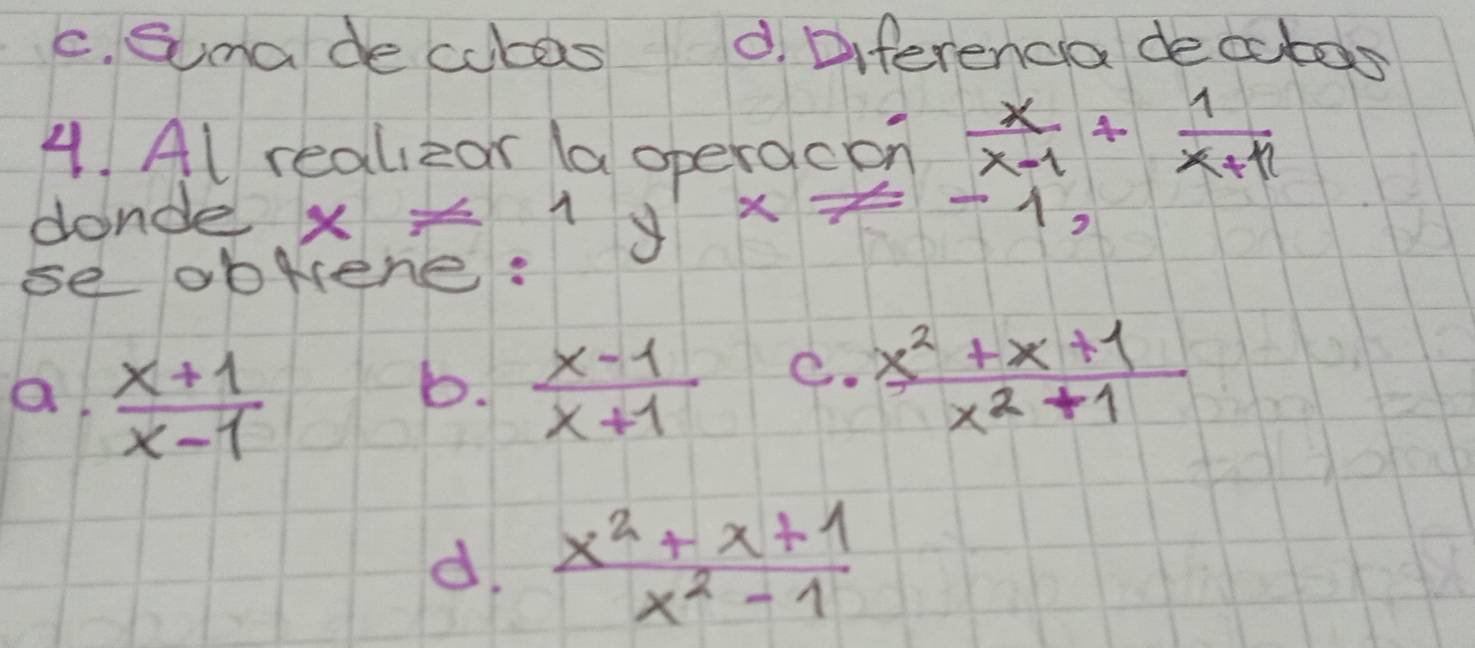 c. Suma de cubos d. Diferencia de cubos
4. Al realizar la operación x/(x-1) + 1/(x+1)
donde x ≠ 1 y x ≠ -1,
se obtiene:
a. (x+1)/(x-1) b. (x-1)/(x+1) c. (x²+x+1)/(x²+1)
d. (x²+x+1)/(x²-1)